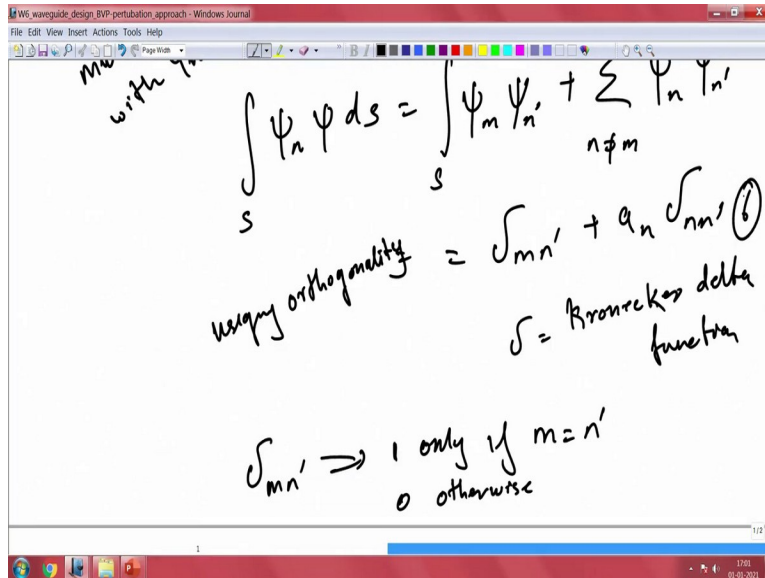 W6_waveguide_design_BVP-pertubation_approach - Windows Journal
File Edit View Insert Actions Tools Help
Page Width
with
∫_S ψ_n ψ ds = ∫_S ψ_m ψ_n' + Σ_{n≠m} ψ_n ψ_n'
using orthogonality = δ_mn' + a_n δ_nn' ⑥
δ = Kronecker delta
function
δ_mn' ⇒ 1 only if m = n'
0 otherwise
1/2
1
17:01
01-01-2021